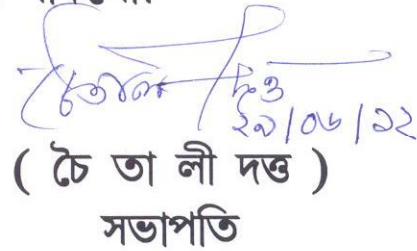 চৈতালী দত্ত
২৯/০৬/১২
( চৈ তা লী দত্ত )
সভাপতি